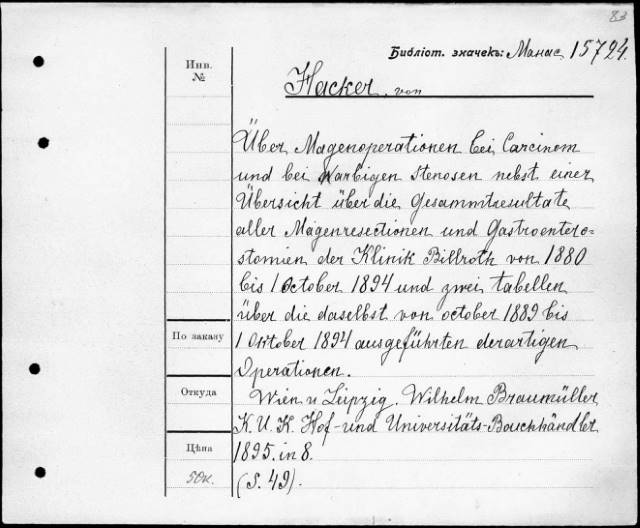 83
Библіот. значекъ: Манас 15724.
Инв. №
Hacker, von
Über Magenoperationen bei Carcinom
und bei Narbigen Stenosen nebst einer
Übersicht über die Gesammtresultate
aller Magenresectionen und Gastroentero=
stomien der Klinik Billroth von 1880
bis 1 October 1894 und zwei tabellen
über die daselbst von october 1889 bis
По заказу
1 Oktober 1894 ausgeführten derartigen
Operationen.
Откуда
Wien u Leipzig. Wilhelm Braumüller
K. U. K. Hof- und Universitäts-Bouchhändler
Цѣна
1895. in 8.
50к.
(S. 49).